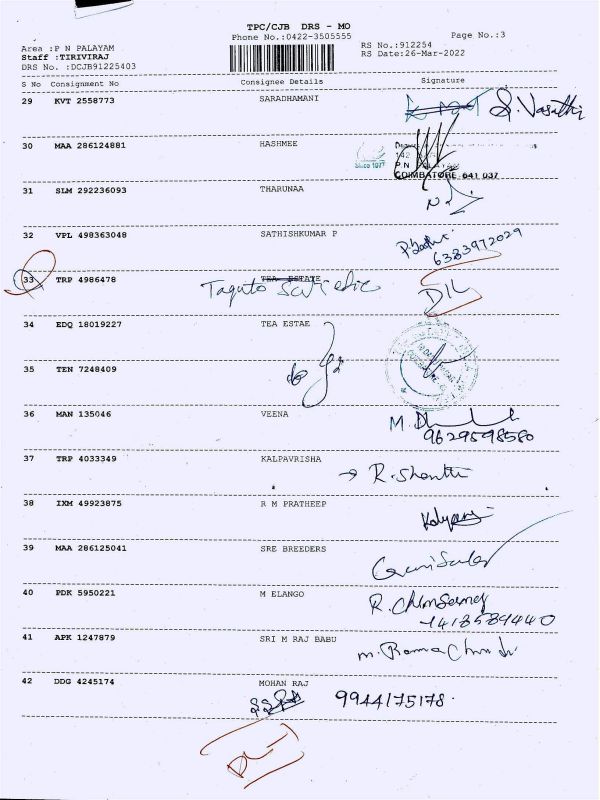 TPC/CJB DRS - MO
Phone No.:0422-3505555
Page No.:3
Area :P N PALAYAM
RS No.:912254
Staff :TIRIVIRAJ
RS Date:26-Mar-2022
DRS No. :DCJB91225403
S No Consignment No Consignee Details Signature
29 KVT 2558773 SARADHAMANI
S. Vasathi
30 MAA 286124881 HASHMEE
142
Since 1977 P N PALAYAM
COIMBATORE 641 037
31 SLM 292236093 THARUNAA
32 VPL 498363048 SATHISHKUMAR P
6383972029
33 TRP 4986478 TEA ESTATE
34 EDQ 18019227 TEA ESTAE
35 TEN 7248409
36 MAN 135046 VEENA
9629598580
37 TRP 4033349 KALPAVRISHA
→ R. Shanthi
38 IXM 49923875 R M PRATHEEP
39 MAA 286125041 SRE BREEDERS
40 PDK 5950221 M ELANGO
41 APK 1247879 SRI M RAJ BABU
42 DDG 4245174 MOHAN RAJ
9944175178.